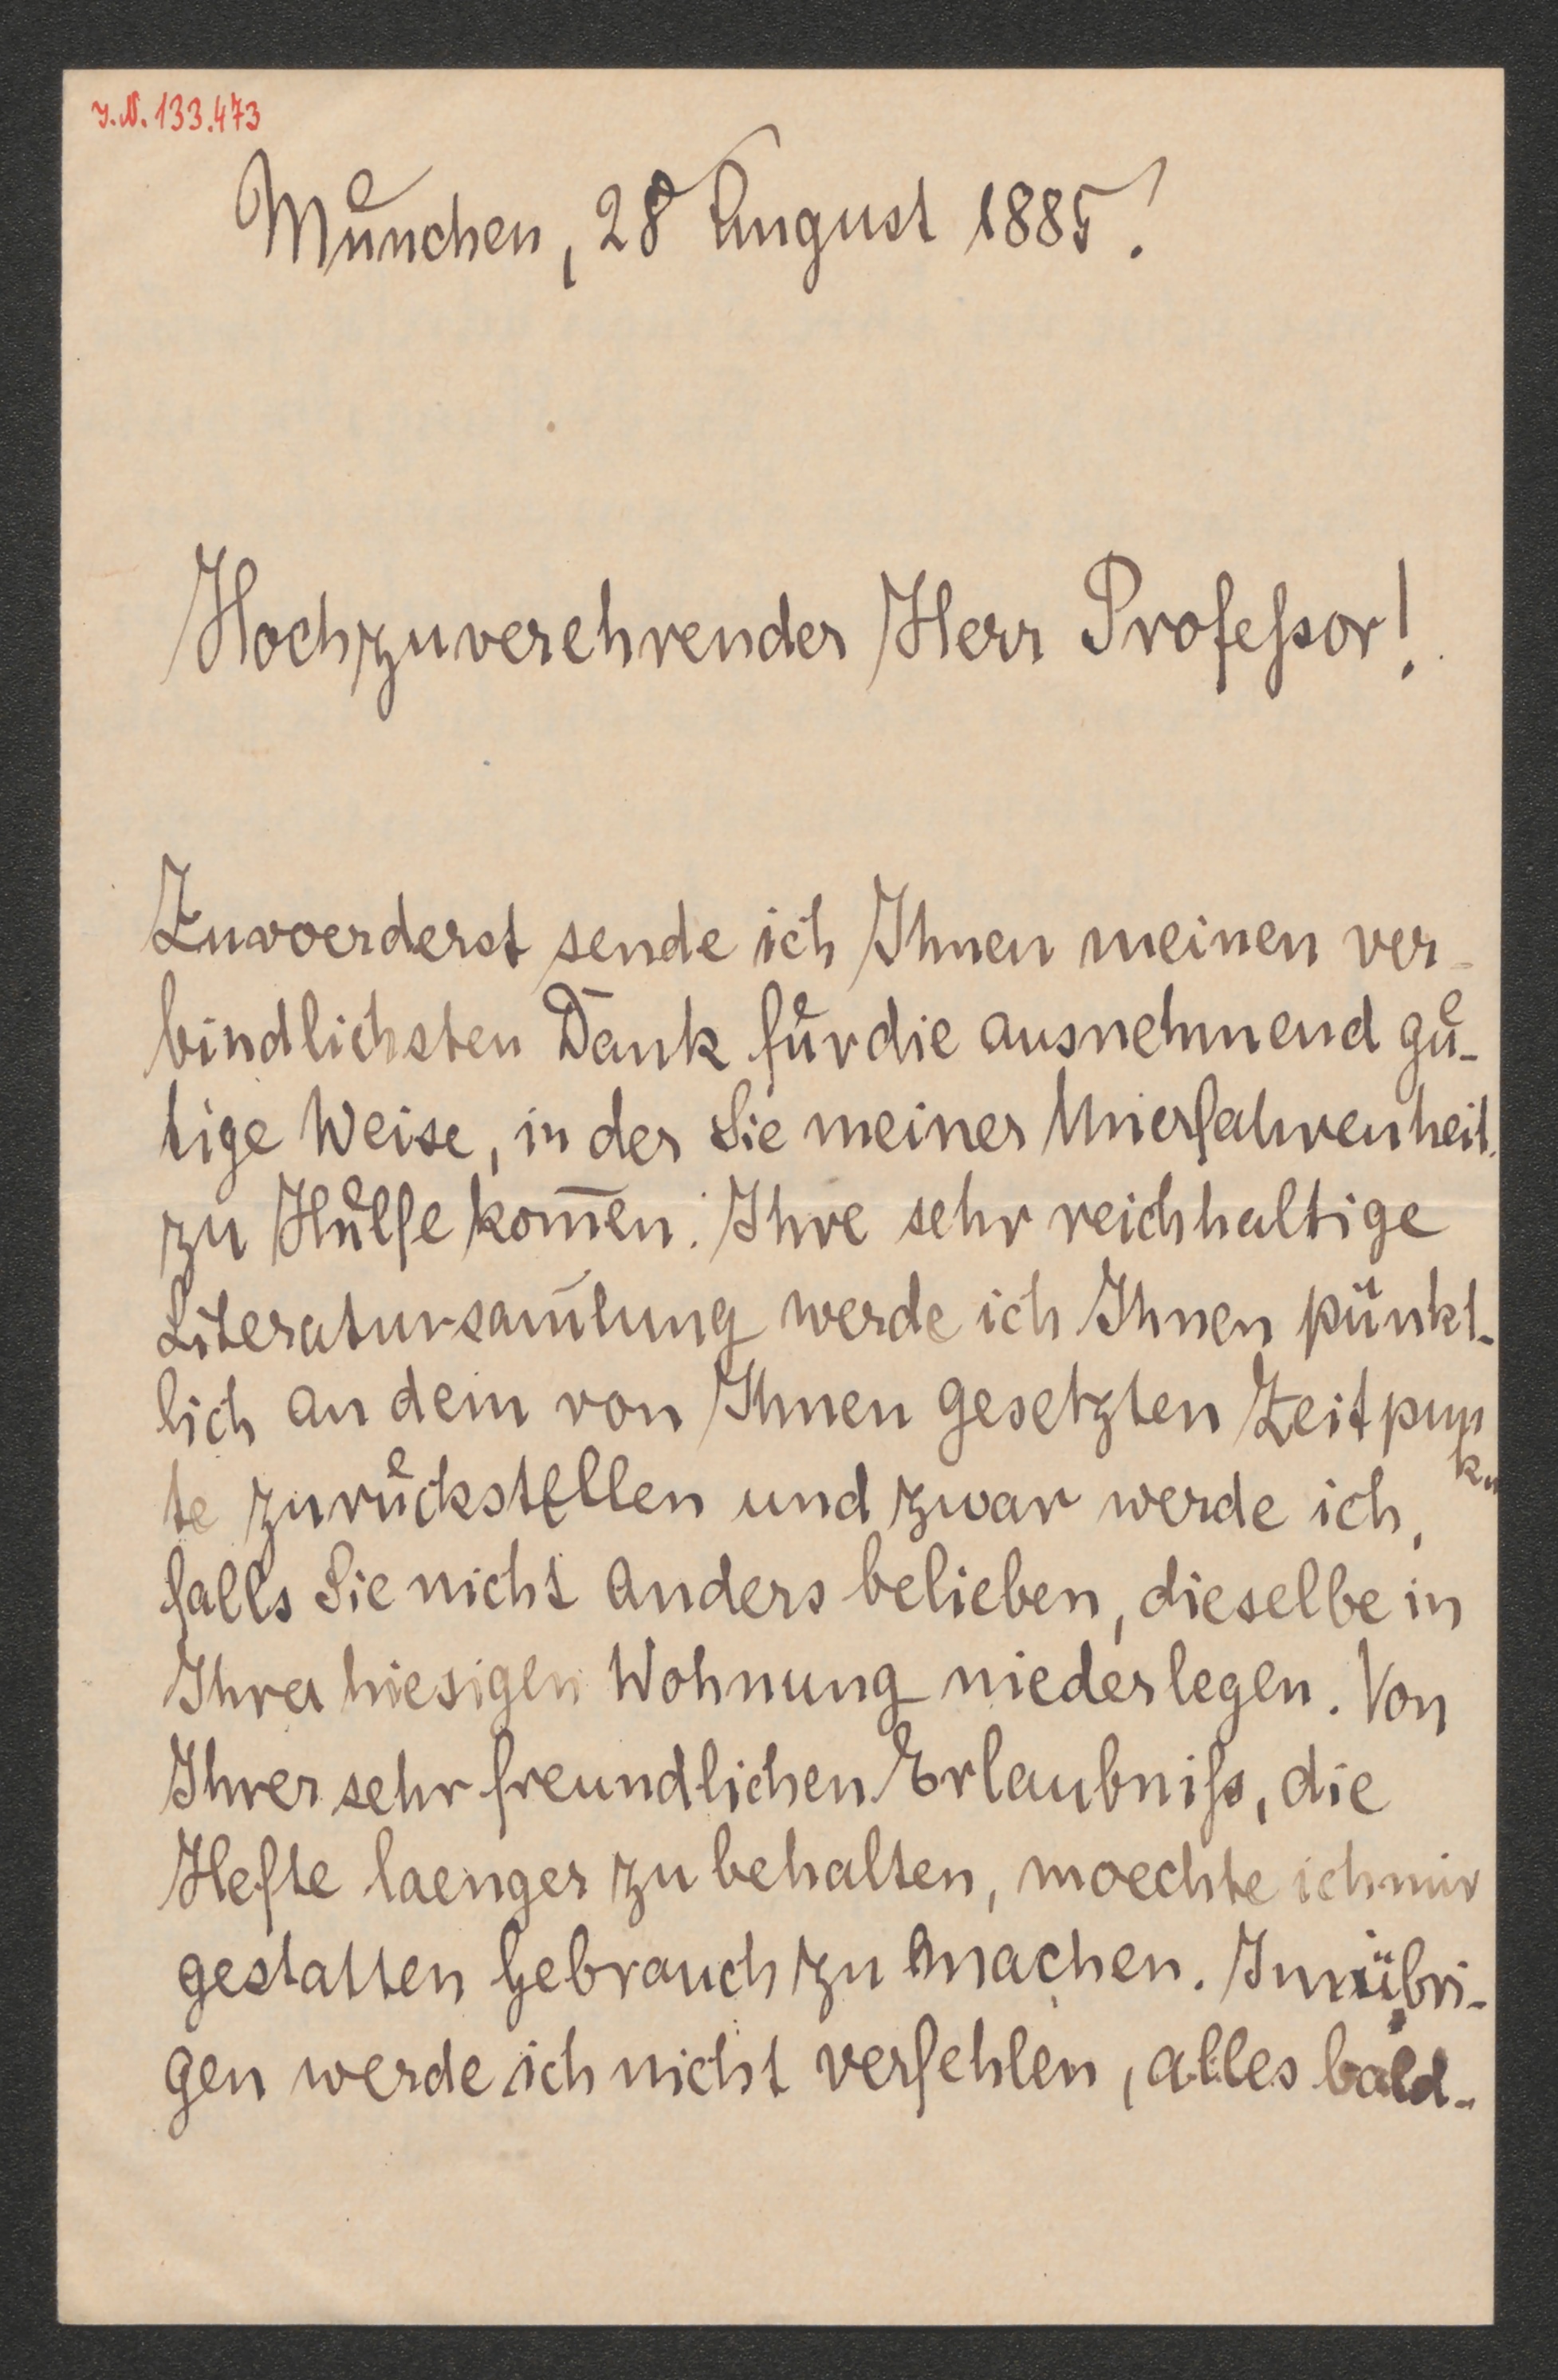 J.N. 133.473
Muͤnchen, 28 August 1885!
Hochzuverehrender Herr Profeſsor!
Zuvoerderst sende ich Ihnen meinen ver-
bindlichsten Dank fuͤr die ausnehmend guͤ-
tige Weise, in der Sie meiner Unerfahrenheit
zu Huͤlfe kom̅en. Ihre sehr reichhaltige
Literatursam̅lung werde ich Ihnen pünkt-
lich an dem von Ihnen gesetzten Zeitpun
k-
te zuruͤckstellen und zwar werde ich,
falls Sie nicht anders belieben, dieselbe in
Ihrer hiesigen Wohnung niederlegen. Von
Ihrer sehr freundlichen Erlaubniſs, die
Hefte laenger zu behalten, moechte ich mir
gestatten Gebrauch zu machen. Im übri-
gen werde ich nicht verfehlen, alles bald-